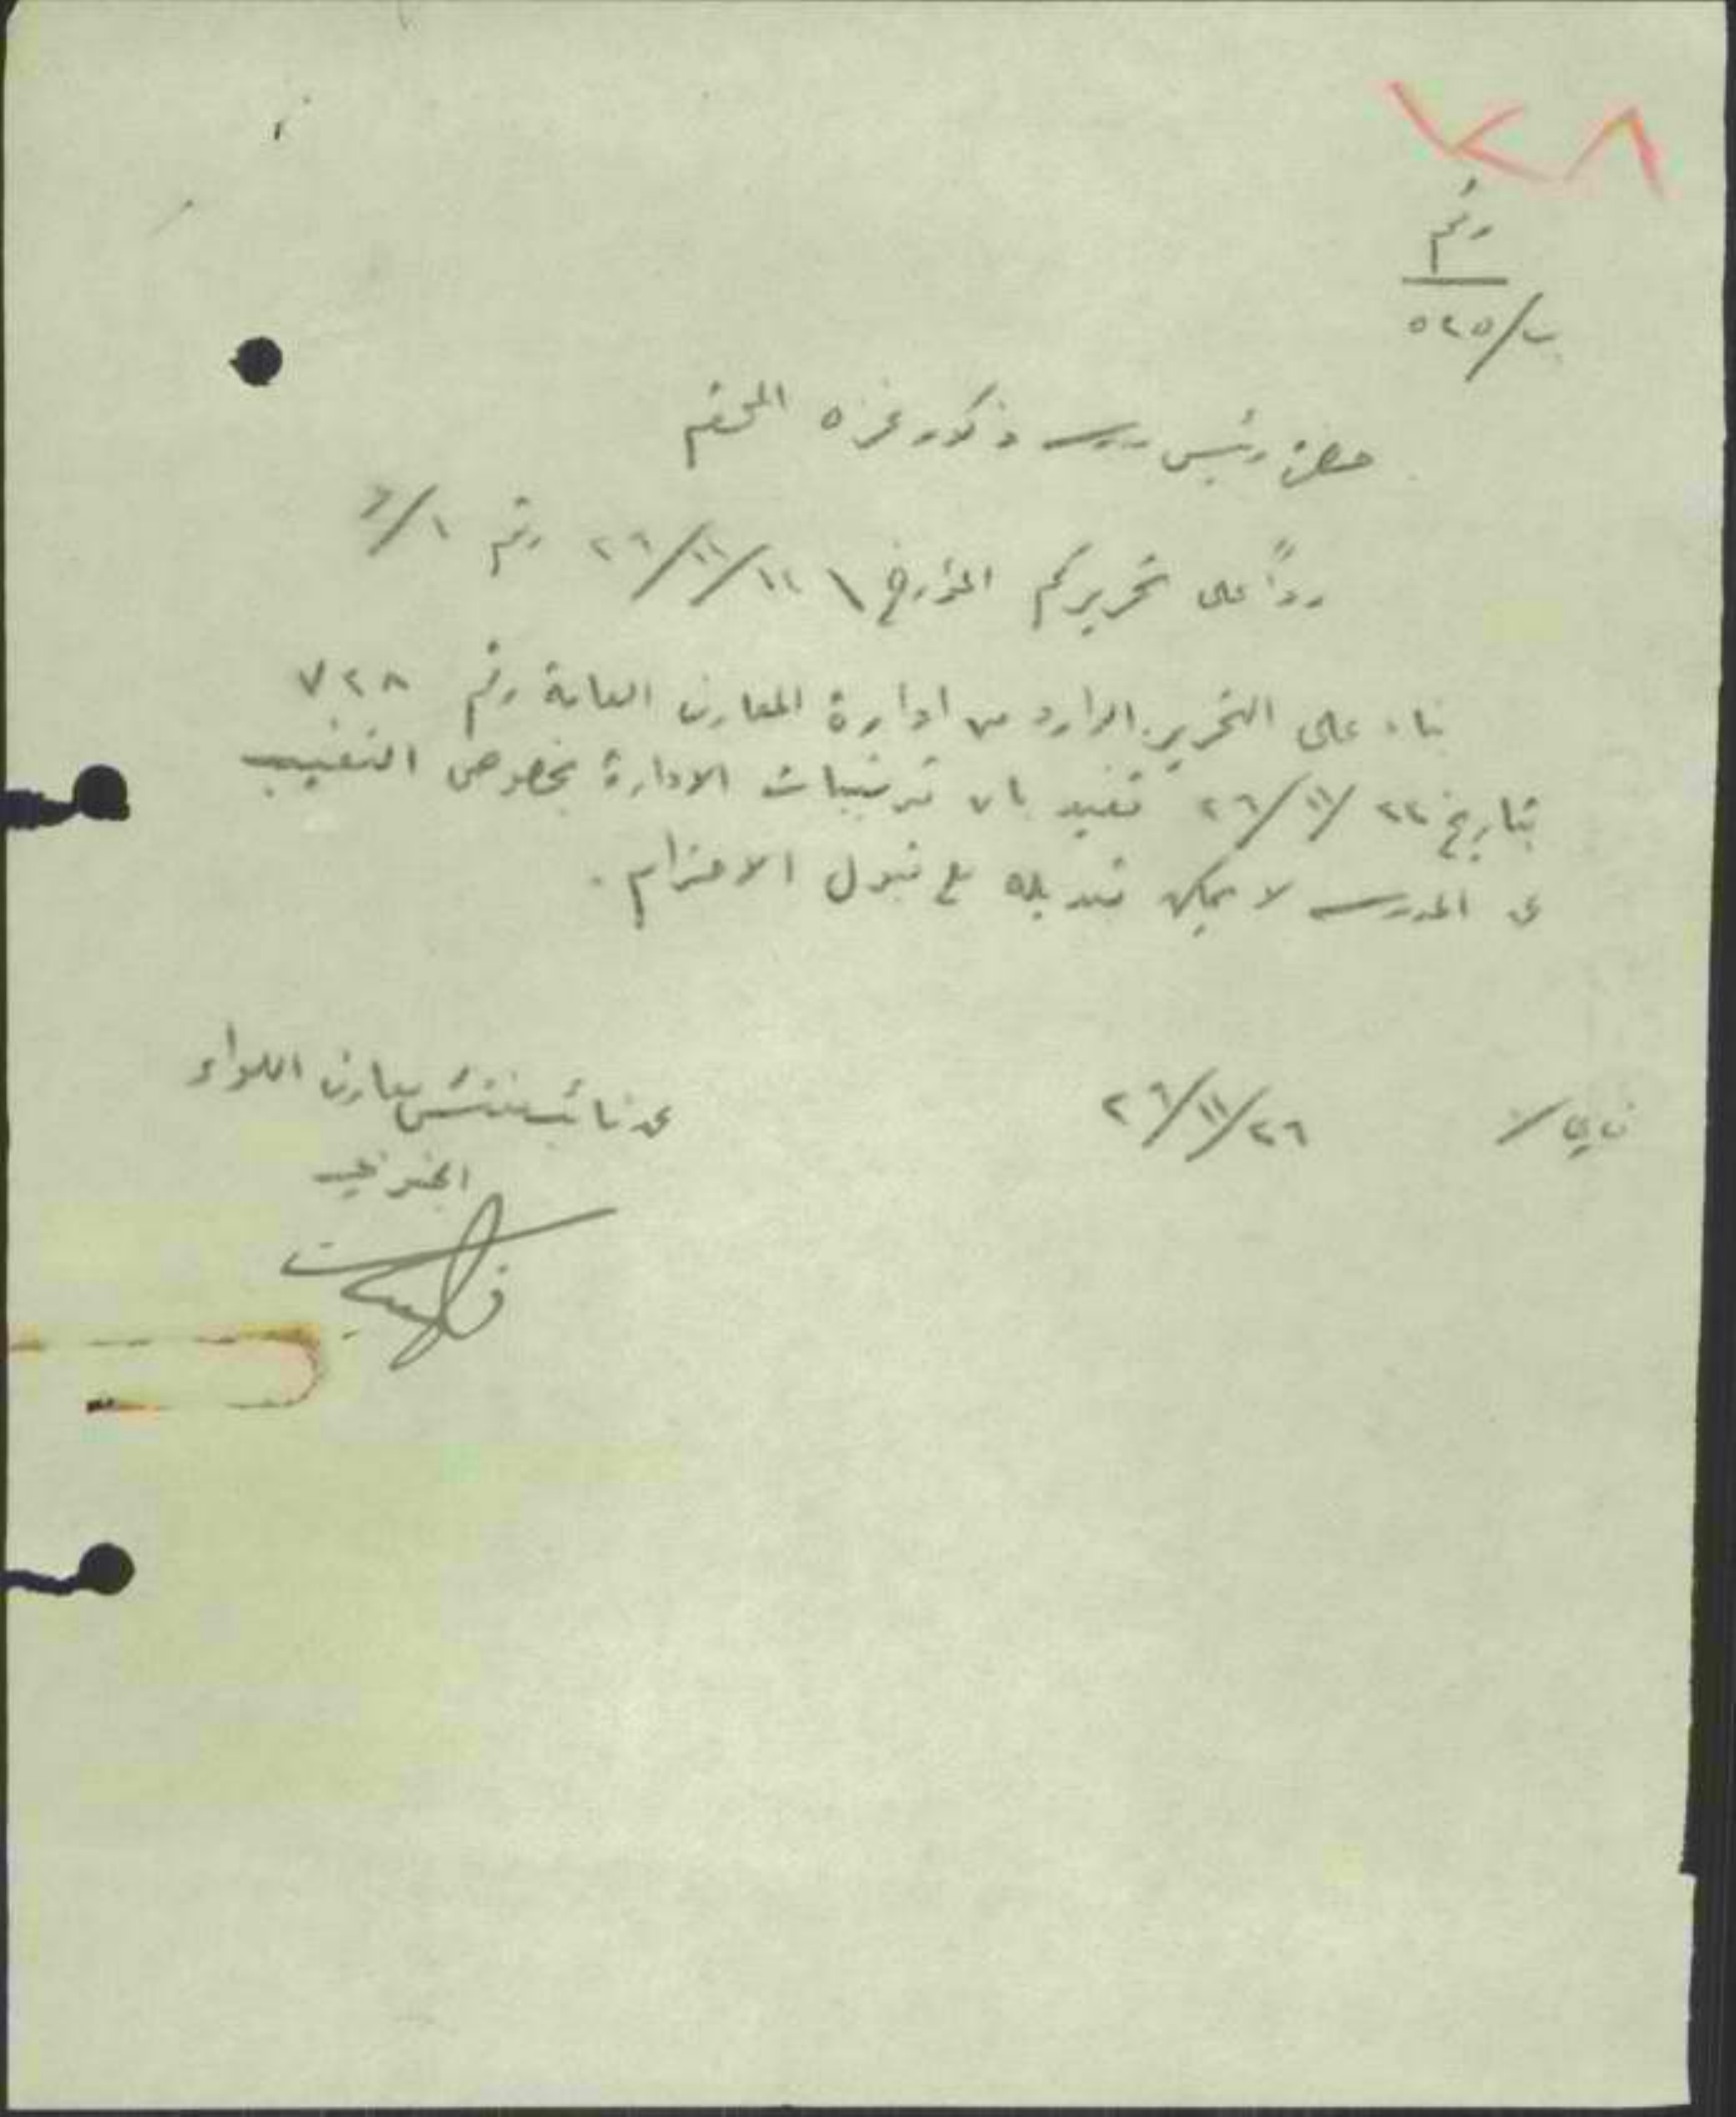 ٧٨
رقم
ب/٥٢٥
حضرة رئيس مدرسة ذكور غزه المحترم
رداً على تحريركم المؤرخ ٢٦/١١/١٤ رقم ٦/١
بناء على التحرير الوارد من ادارة المعارف العامة رقم ٧٢٨
بتاريخ ٢٦/١١/٢٢ تفيد بان ترتيبات الادارة بخصوص
في المدرسة لا يمكن تبديله مع قبول الاحترام .
٢٦/١١/٢٦
عن نائب مفتش معارف اللواء
الجنوبي